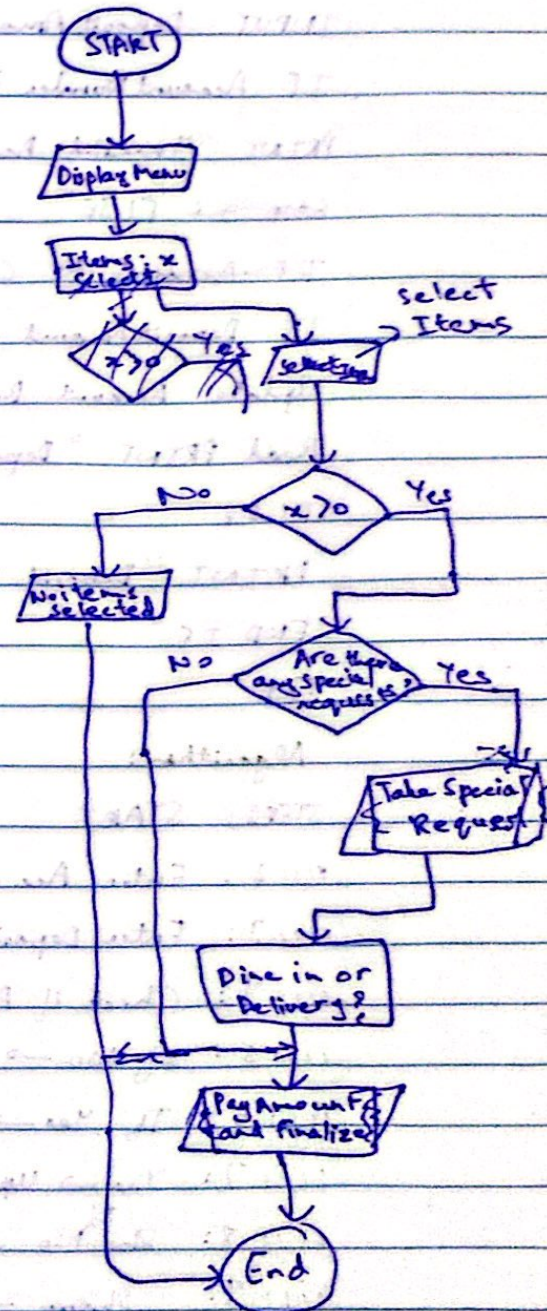 START
Display Menu
Items: x
Select I
select
Items
x>0
Yes
Select Items
x>0
No
Yes
No items
selected
Are there
any special
requests?
No
Yes
Take Special
Request
Dine in or
Delivery?
Pay Amount
and Finalize
End